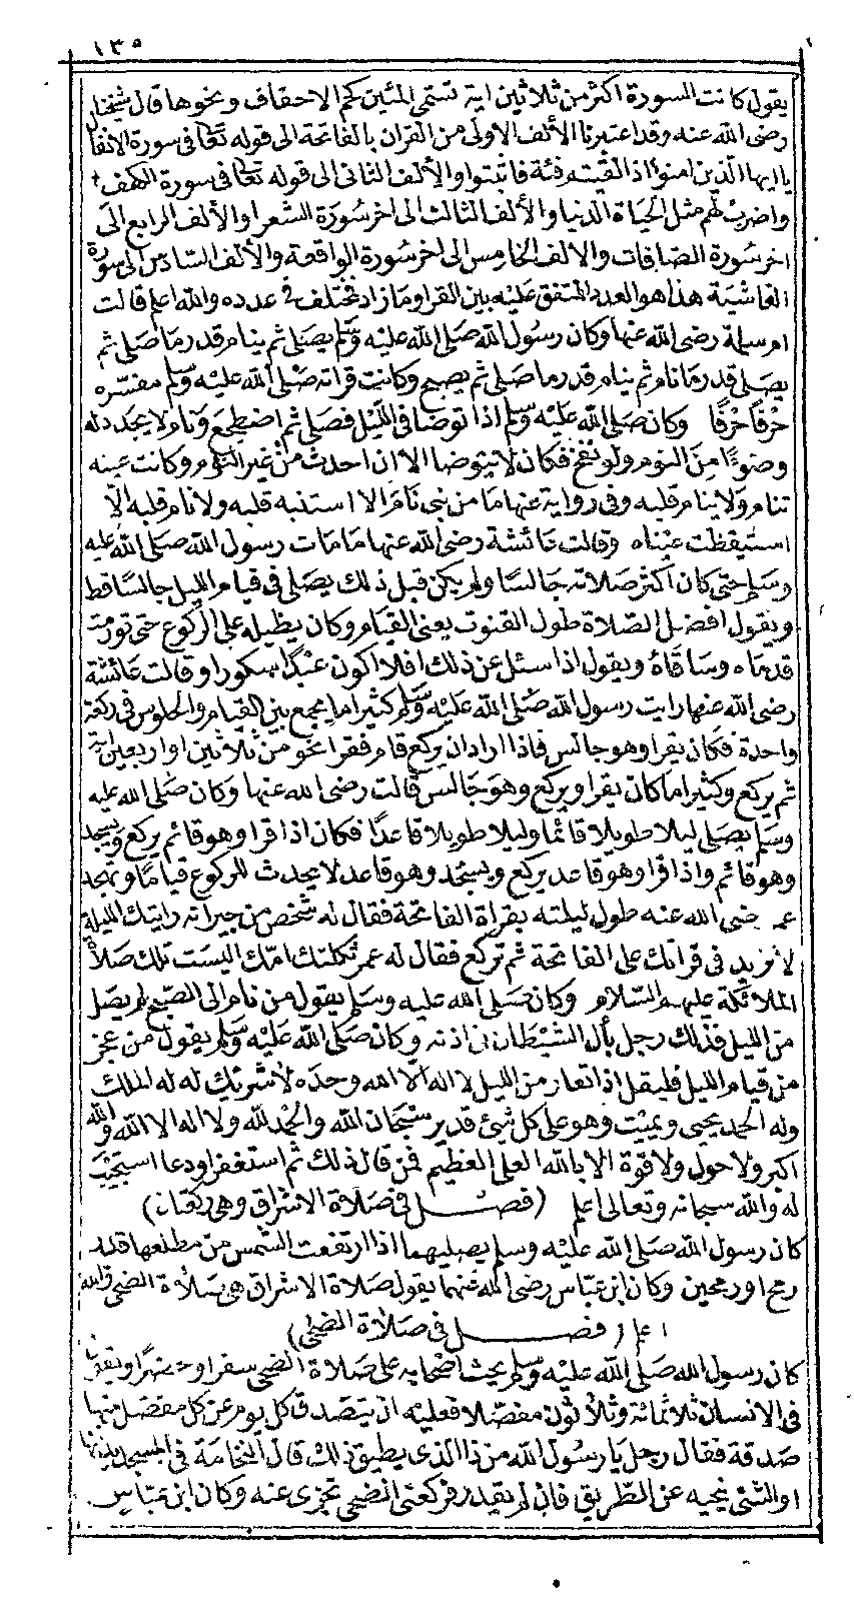 ١٣٥
يقول كانت السورة اكثر من ثلاثين اية تسمى المئين كم الاحقاف ونحوها قال شيخنا
رضى الله عنه وقد اعتبرنا الألف الاولى من القران بالفاتحة الى قوله تعالى فى سورة الانفا
ياايها الذين امنوا اذا لقيتم فئة فاثبتوا والألف الثانى الى قوله تعالى فى سورة الكهف
واضرب لهم مثل الحياة الدنيا والألف الثالث الى اخر سورة الشعرا والألف الرابع الى
اخر سورة الصافات والالف الخامس الى اخر سورة الواقعة والألف السادس الى سورة
الغاشية هذا هو العدد المتفق عليه بين القرا وما زاد مختلف فى عدده والله اعلم قالت
ام سلمة رضى الله عنها وكان رسول الله صلى الله عليه وسلم يصلى ثم ينام قدر ما صلى ثم
يصلى قدر ما نام ثم ينام قدر ما صلى ثم يصبح وكانت قراته صلى الله عليه وسلم مفسره
حرفا حرفا وكان صلى الله عليه وسلم اذا توضا فى الليل فصلى ثم اضطجع ونام لا يجدد له
وضوءا من النوم ولو نفخ فكان لا يتوضا الا ان احدث من غير النوم وكانت عينه
تنام ولا ينام قلبه وفى رواية عنها ما من نبى نام الا استنبه قلبه ولا نام قلبه الا
استيقظت عيناه وقالت عائشة رضى الله عنها ما مات رسول الله صلى الله عليه
وسلم حتى كان اكثر صلاته جالسا ولم يكن قبل ذلك يصلى فى قيام الليل جالسا قط
ويقول افضل الصلاة طول القنوت يعنى القيام وكان يطيله على الركوع حتى تورمت
قدماه وساقاه ويقول اذا سئل عن ذلك افلا اكون عبدا شكورا وقالت عائشة
رضى الله عنها رايت رسول الله صلى الله عليه وسلم كثيرا ما يجمع بين القيام والجلوس فى ركعة
واحدة فكان يقرا وهو جالس فاذا اراد ان يركع قام فقرا نحو من ثلاثين او اربعين اية
ثم يركع وكثيرا ما كان يقرا ويركع وهو جالس قالت رضى الله عنها وكان صلى الله عليه
وسلم يصلى ليلا طويلا قائما وليلا طويلا قاعدا فكان اذا قرا وهو قائم يركع ويسجد
وهو قائم واذا قرا وهو قاعد يركع ويسجد وهو قاعد لا يحدث للركوع قياما وتهجد
عمر رضى الله عنه طول ليلته بقراة الفاتحة فقال له شخص من جيرانه رايتك الليلة
لا تزيد فى قراتك على الفاتحة ثم تركع فقال له عمر ثكلتك امك اليست تلك صلاة
الملائكة عليهم السلام وكان صلى الله عليه وسلم يقول من نام الى الصبح لم يصل
من الليل فذلك رجل بال الشيطان فى اذنه وكان صلى الله عليه وسلم يقول من عجز
من قيام الليل فليقل اذا تعار من الليل لا اله الا الله وحده لا شريك له له الملك
وله الحمد يحيى ويميت وهو على كل شئ قدير سبحان الله والحمد لله ولا اله الا الله والله
اكبر ولا حول ولا قوة الا بالله العلى العظيم فمن قال ذلك ثم استغفر او دعا استجيب
له والله سبحانه وتعالى اعلم (فصل فى صلاة الاشراق وهى ركعتان)
كان رسول الله صلى الله عليه وسلم يصليهما اذا ارتفعت الشمس من مطلعها قدر
رمح او رمحين وكان ابن عباس رضى الله عنهما يقول صلاة الاشراق هى صلاة الضحى والله
اعلم (فصل فى صلاة الضحى)
كان رسول الله صلى الله عليه وسلم يحث اصحابه على صلاة الضحى سفرا وحضرا ويقول
فى الانسان ثلاثمائة وثلاثون مفصلا فعليه ان يتصدق كل يوم عن كل مفصل منها
صدقة فقال رجل يا رسول الله من ذا الذى يطيق ذلك قال النخامة فى المسجد يدفنها
او الشئ ينحيه عن الطريق فان لم يقدر فركعتى الضحى تجزى عنه وكان ابن عباس